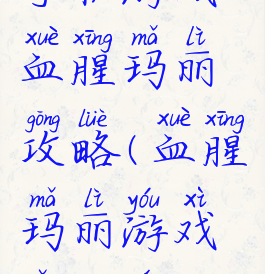 xuè xīng mǎ lì
血腥玛丽
gōng lüè xuè xīng
攻略(血腥
mǎ lì yóu xì
玛丽游戏